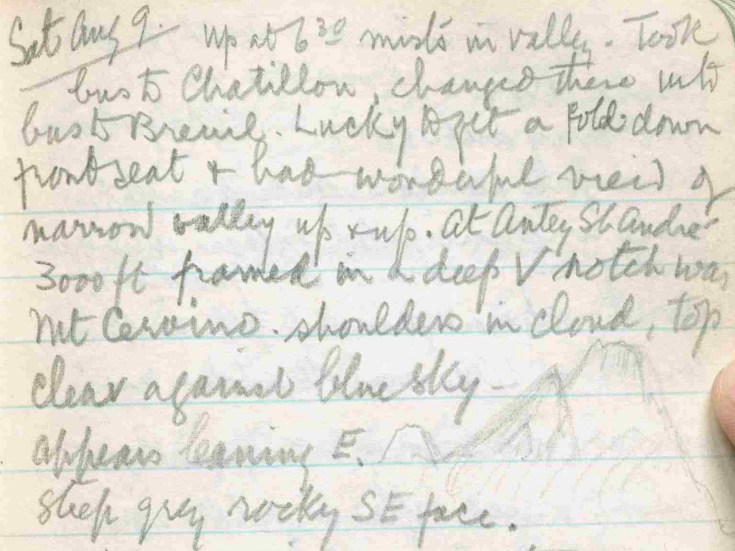 Sat Aug 9. up at 6 30 mists in valley. Took
bus to Chatillon, changed there into
bus to Breuil. Lucky to get a fold down
front seat + had wonderful view of
narrow valley up + up. At Antey St André
3000 ft framed in a deep V notch was
Mt Cervino. shoulders in cloud, top
clear against blue sky -
appears leaning E.
steep grey rocky SE face.